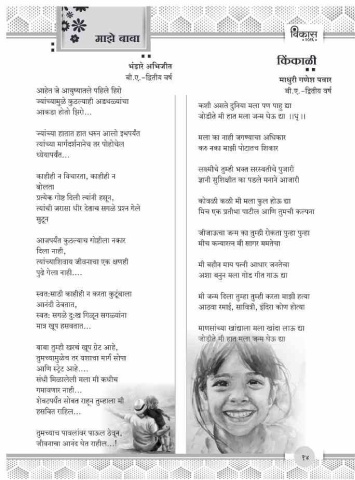 माझे बाबा
भंडारे अभिजीत
बी.ए.-द्वितीय वर्ष
आहेत जे आयुष्यातले पहिले हिरो
ज्यांच्यामुळे कुठल्याही अडथळ्यांचा
आकडा होतो झिरो...
ज्यांच्या हातात हात धरून आलो इथपर्यंत
ज्यांच्या मार्गदर्शनानेच तर पोहोचेल
ध्येयापर्यंत...
काहीही न विचारता, काहीही न
बोलता
प्रत्येक गोष्ट दिली त्यांनी हसून,
त्यांची जरासा धीर देताच सगळे प्रश्न गेले
सुटून
आजपर्यंत कुठल्याच गोष्टीला नकार
दिला नाही,
त्यांच्याशिवाय जीवनाचा एक क्षणही
पुढे गेला नाही....
स्वत:साठी काहीही न करता कुटूंबाला
आनंदी ठेवतात,
स्वत: सगळे दु:ख गिळून सगळ्यांना
मात्र खूप हसवतात...
बाबा तुम्ही खरचं खूप ग्रेट आहे,
तुमच्यामुळेच तर यशाचा मार्ग सोपा
आणि स्ट्रेट आहे....
संधी मिळालेली मला मी कधीच
गमावणार नाही...
शेवटपर्यंत सोबत राहून तुम्हाला मी
हसवित राहिल...
तुमच्याच पावलांवर पाऊल ठेवून,
जीवनाचा आनंद घेत राहील...!
विकास
किंकाळी
माधुरी गणेश पवार
बी.ए.-द्वितीय वर्ष
कशी असते दुनिया मला पण पाहू द्या
जोडीते मी हात मला जन्म घेऊ द्या ।।धृ।।
मला का नाही जगण्याचा अधिकार
करु नका माझी पोटातच शिकार
लक्ष्मीचे तुम्ही भक्त सरस्वतीचे पुजारी
ज्ञानी सुशिक्षीत का पडले मनाने आजारी
कोवळी कळी मी मला फुल होऊ द्या
मिच एक प्रतीभा पाटील आणि तुमची कल्पना
जीजाऊचा जन्म का तुम्ही रोकता पुन्हा पुन्हा
मीच कन्यारत्न मी सागर ममतेचा
मी बहीन माय पत्नी आधार जनतेचा
अशा बनुन मला गोड गीत गाऊ द्या
मी जन्म दिला तुम्हा तुम्ही करता माझी हत्या
आठवा रमाई, सावित्री, इंदिरा कोण होत्या
माणसांच्या खांद्याला मला खांदा लाऊ द्या
जोडीते मी हात मला जन्म घेऊ द्या...